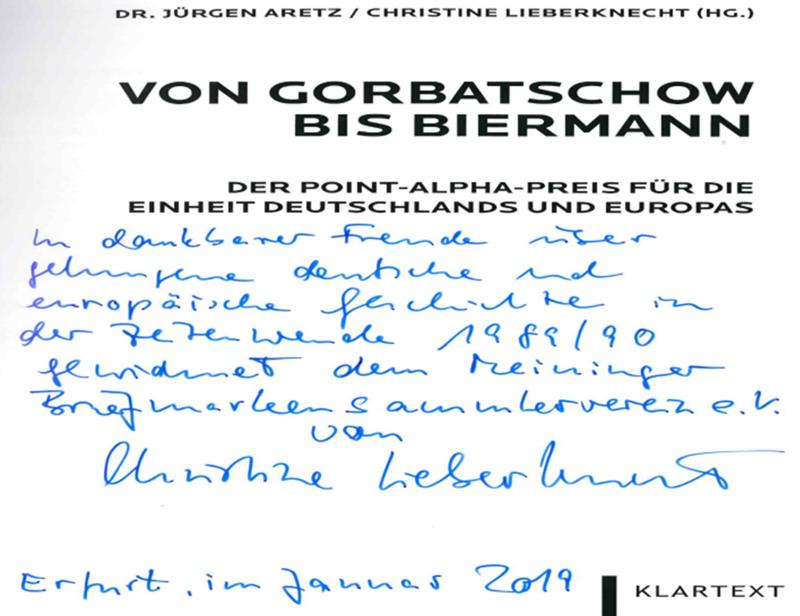 DR. JÜRGEN ARETZ / CHRISTINE LIEBERKNECHT (HG.)
VON GORBATSCHOW
BIS BIERMANN
DER POINT-ALPHA-PREIS FÜR DIE
EINHEIT DEUTSCHLANDS UND EUROPAS
In dankbarer Freude über
gelungene deutsche und
europäische Geschichte in
der Zeitenwende 1989/90
gewidmet dem Meininger
Briefmarkensammlerverein e.V.
von
Christine Lieberknecht
Erfurt, im Januar 2019
KLARTEXT